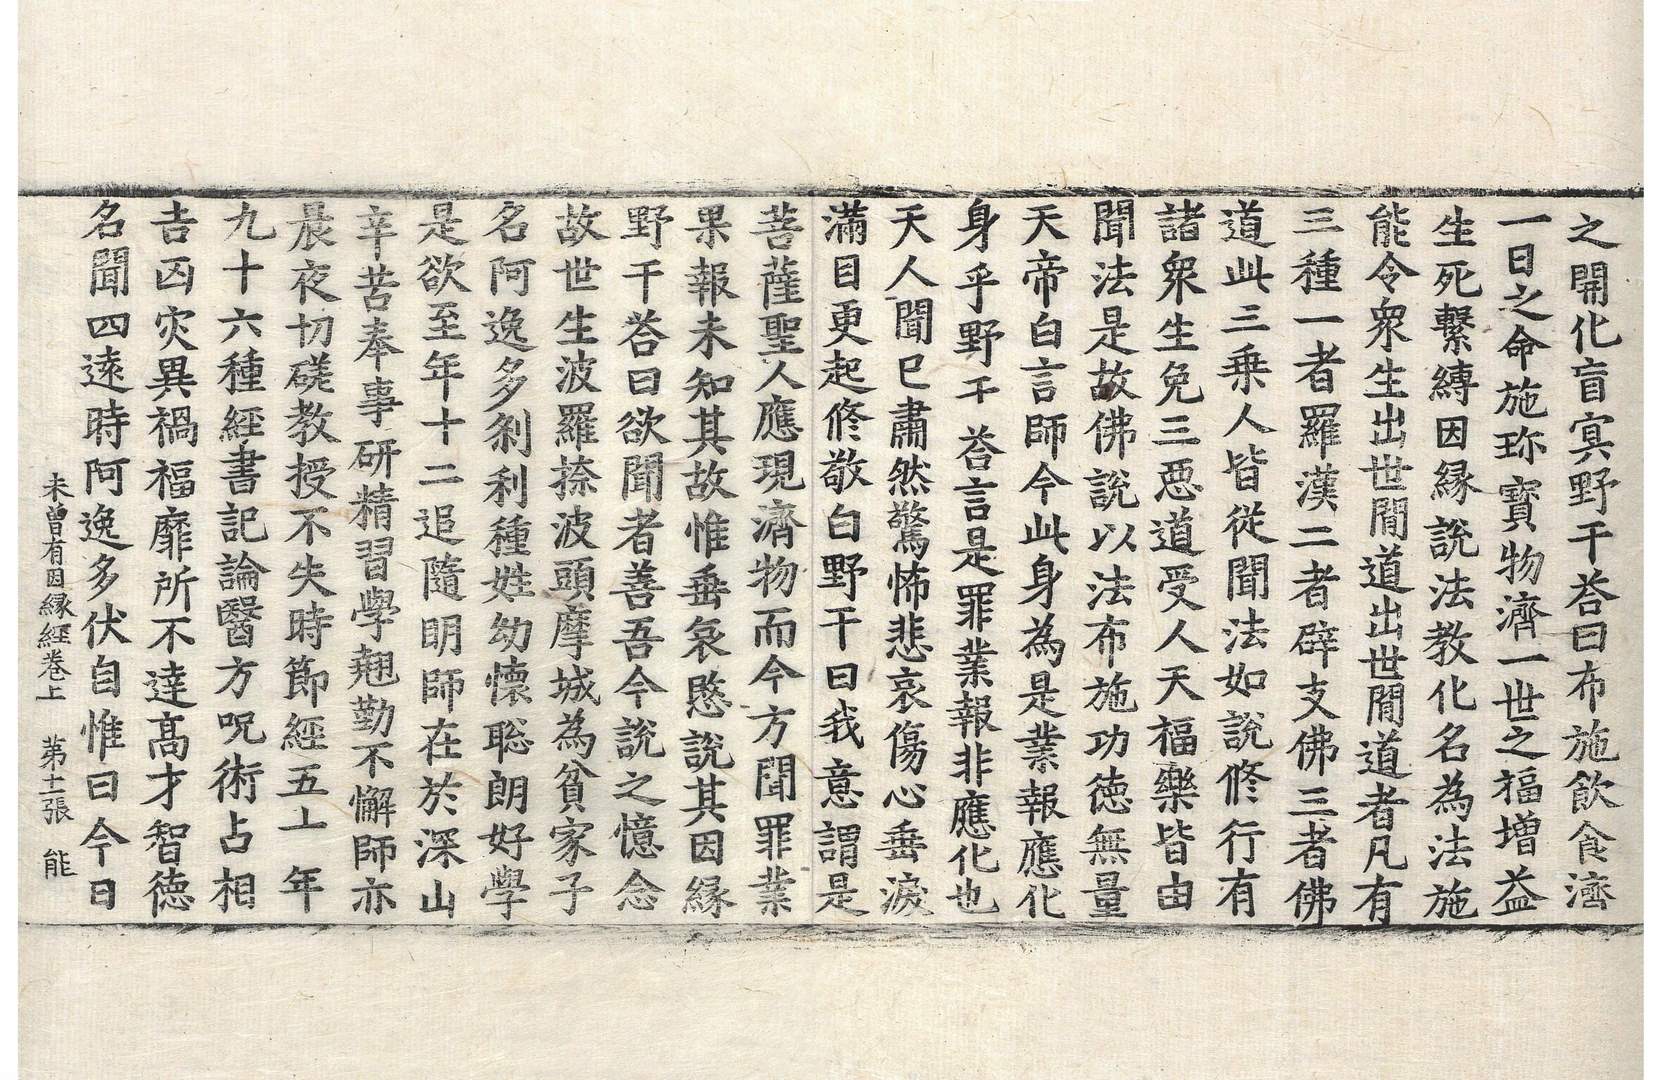 之開化盲冥野干荅曰布施飲食濟
一日之命施珎寶物濟一世之福增益
生死繫縛因縁說法教化名為法施
能令衆生出世閒道出世閒道者凡有
三種一者羅漢二者辟支佛三者佛
道此三乗人皆從聞法如說修行有
諸衆生免三惡道受人天福樂皆由
聞法是故佛說以法布施功徳無量
天帝白言師今此身為是業報應化
身乎野干荅言是罪業報非應化也
天人聞已肅然驚怖悲哀傷心垂淚
滿目更起修敬白野干曰我意謂是
菩薩聖人應現濟物而今方聞罪業
果報未知其故惟垂哀愍說其因縁
野干荅曰欲聞者善吾今說之憶念
故世生波羅捺波頭摩城為貧家子
名阿逸多刹利種姓幼懷聡朗好學
是欲至年十二追隨明師在於深山
辛苦奉事研精習學翹勤不懈師亦
晨夜切磋教授不失時節經五十年
九十六種經書記論醫方呪術占相
吉凶灾異禍福靡所不達髙才智徳
名聞四遠時阿逸多伏自惟曰今日
未曽有因縁經卷上 第十一張 能